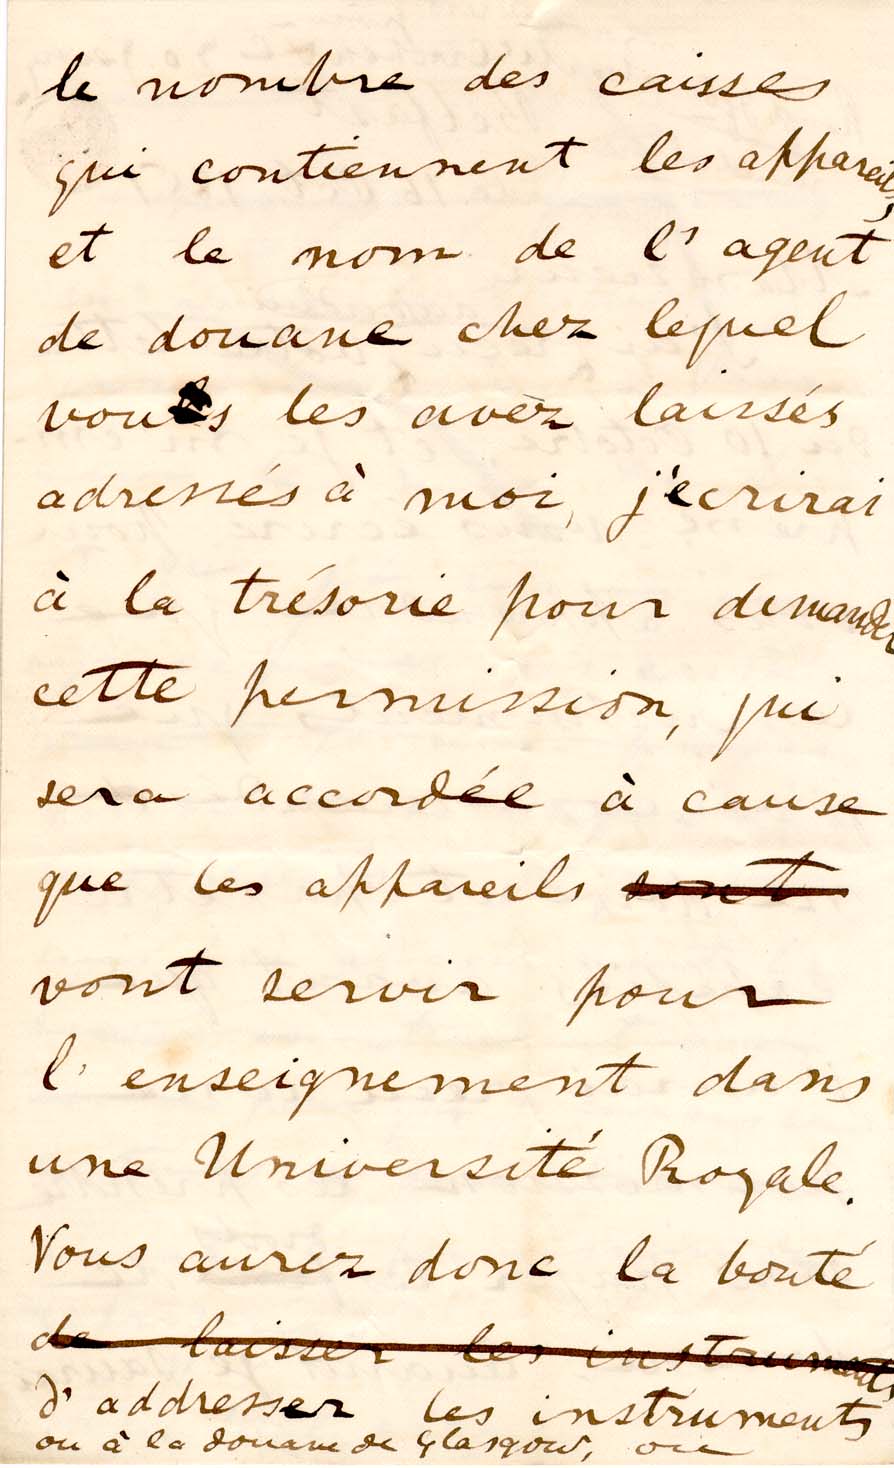 le nombre des caisses
qui contiennent les appareils,
et le nom de l'agent
de douane chez lequel
vous les avez laissés
adressés à moi, j'écrirai
à la trésorie pour demander
cette permission, qui
sera accordée à cause
que les appareils sont
vont servir pour
l'enseignement dans
une Université Royale.
Vous aurez donc la bonté
de laisser les instruments
d'addresser les instruments
ou à la douane de Glasgow, ou